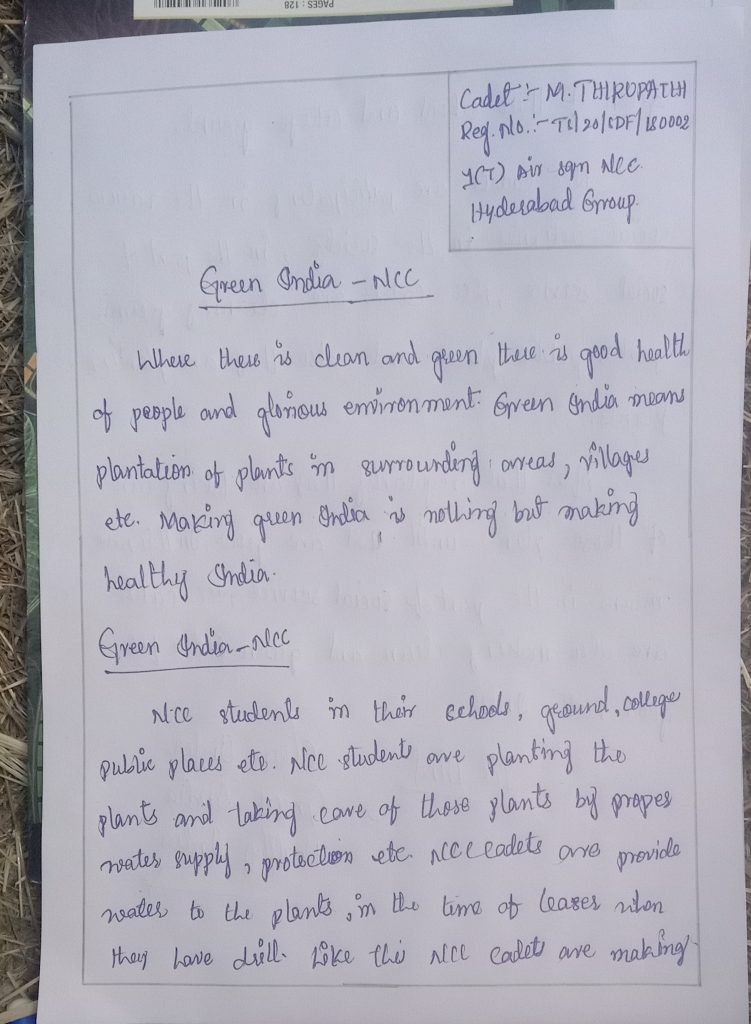 PAGES : 128
Cadet :- M. THIRUPATHI
Reg. No. :- TS/20/SDF/180002
1(T) Air sqn NCC
Hyderabad Group.
Green India - NCC
Where there is clean and green there is good health
of people and glorious environment. Green India means
plantation of plants in surrounding areas, villages
etc. Making green India is nothing but making
healthy India.
Green India - NCC
NCC students in their schools, ground, college
public places etc. NCC students are planting the
plants and taking care of those plants by proper
water supply, protection etc. NCC Cadets are provide
water to the plants, in the time of leaser when
they have drill. Like this NCC Cadets are making